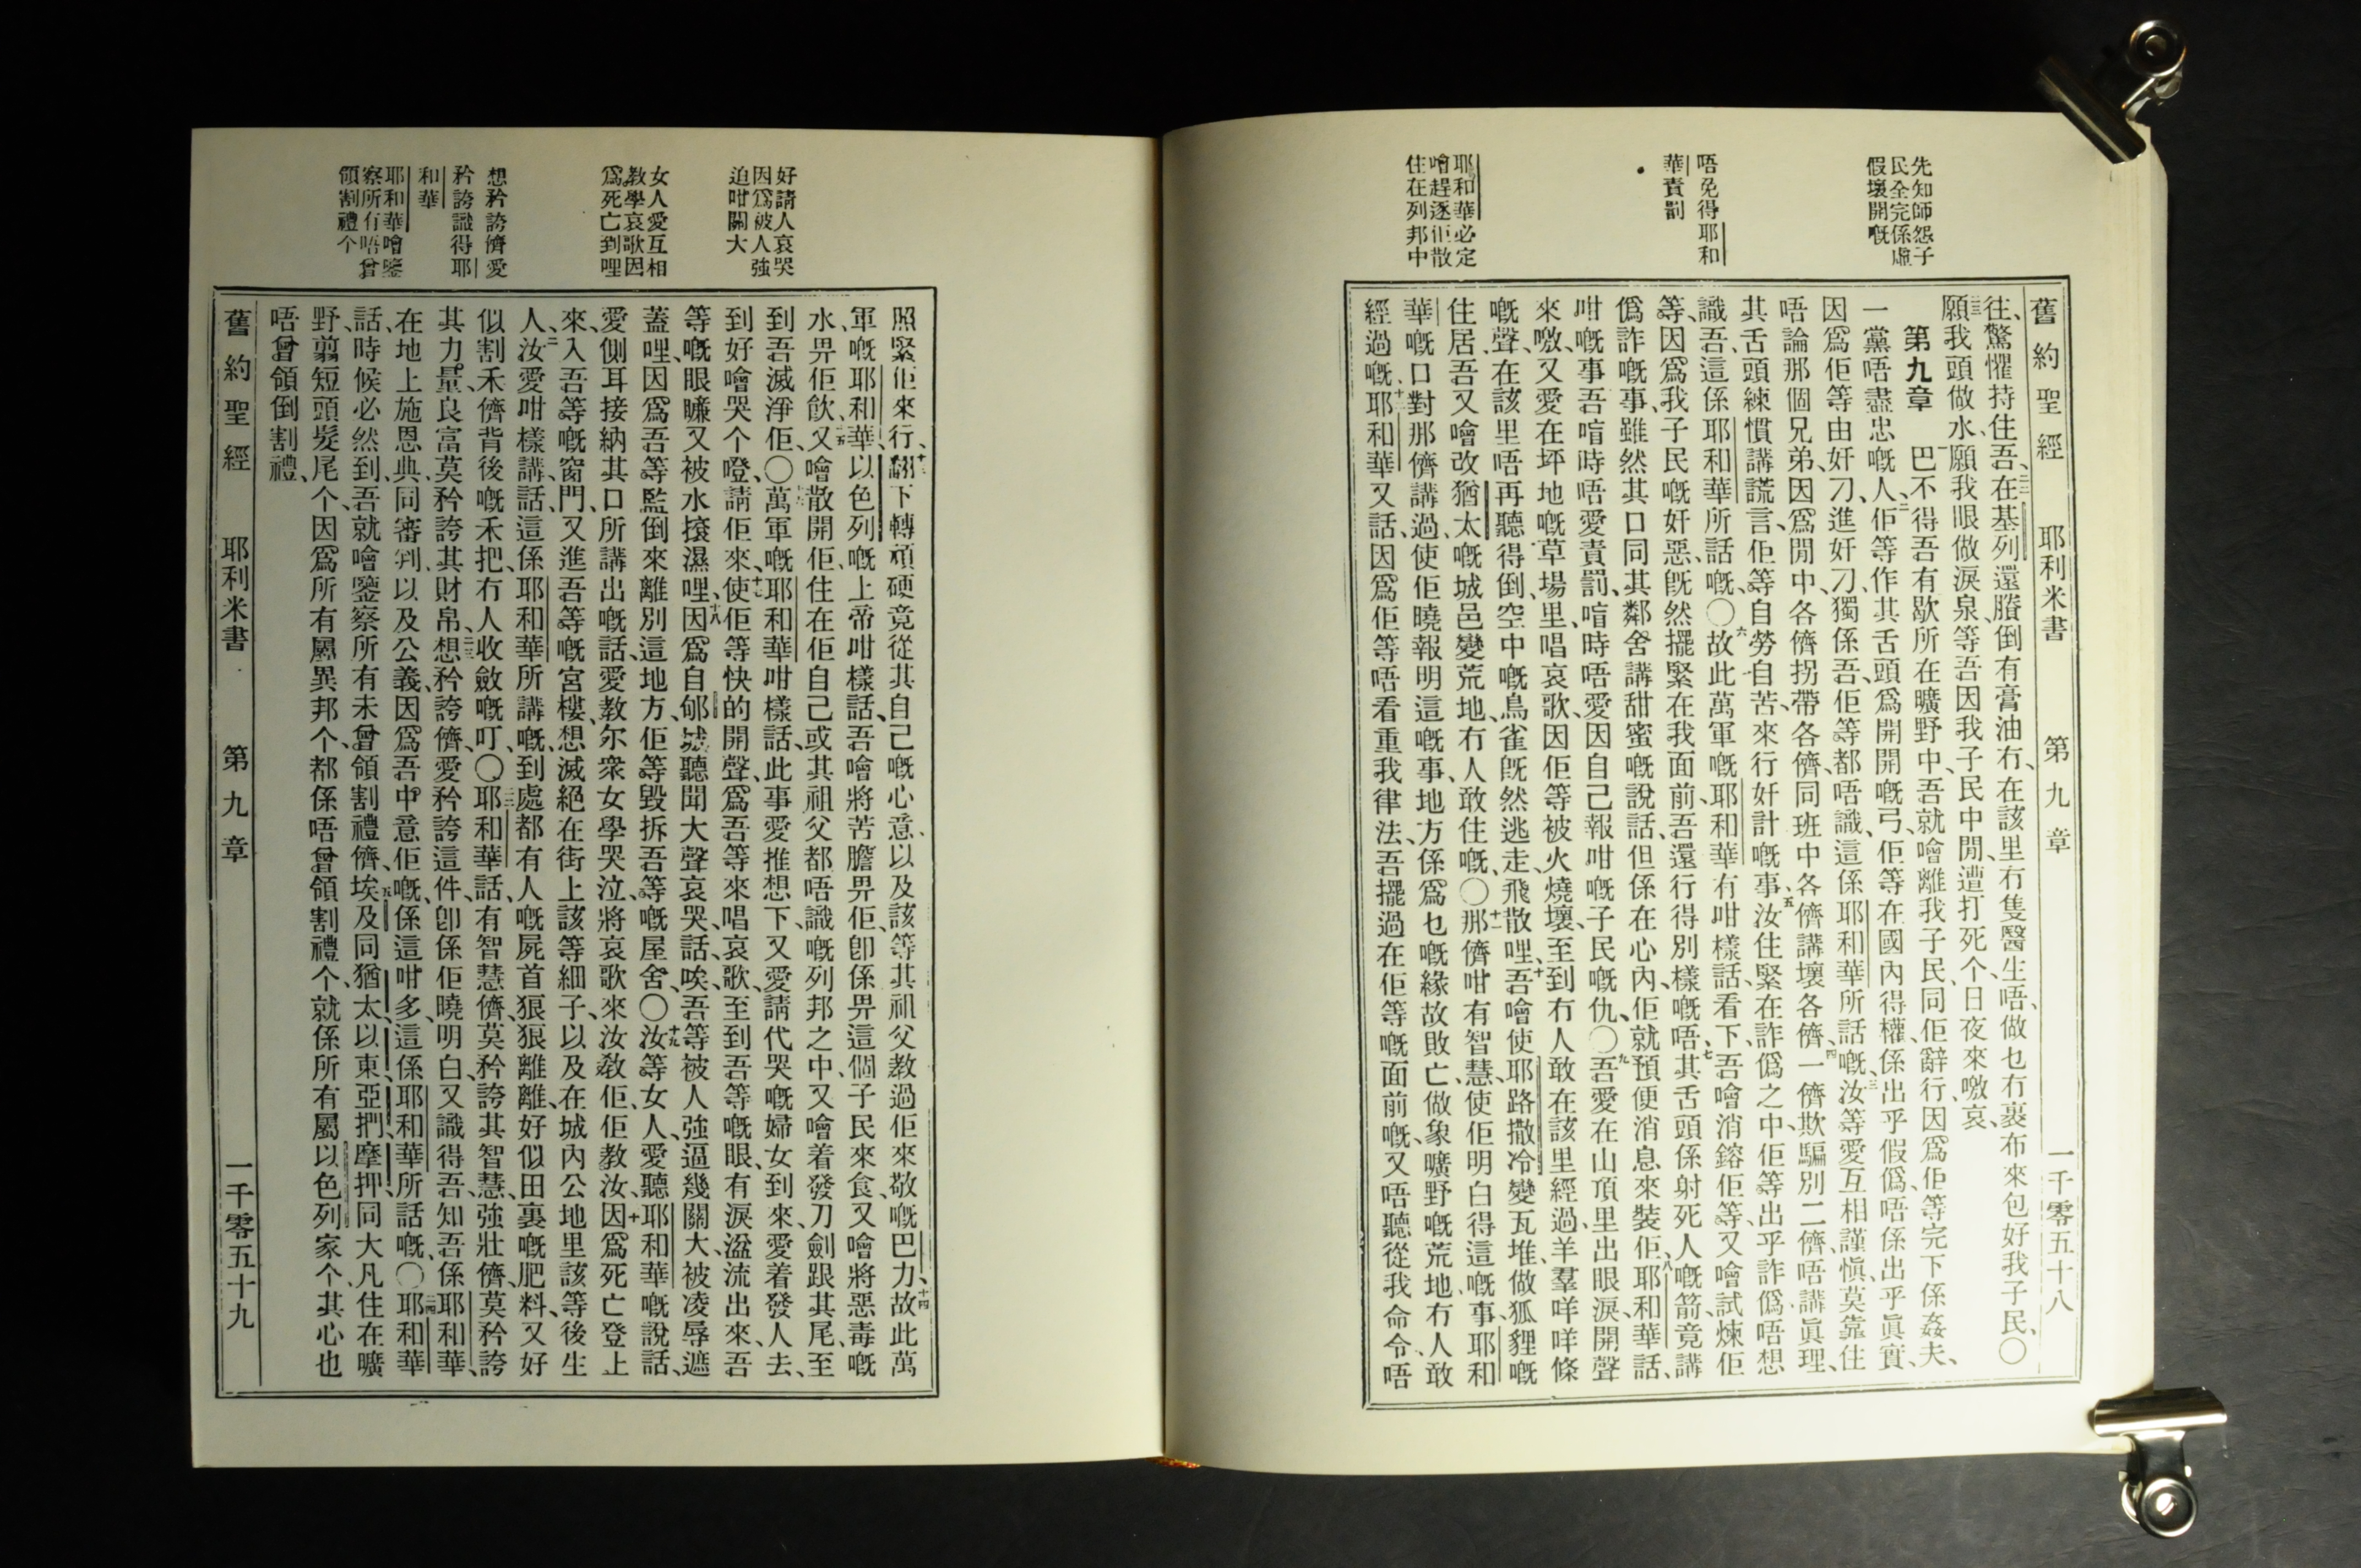 舊約聖經　耶利米書　第九章　一千零五十八
先知師怨子
民全完係虛
假壞開嘅
唔免得耶和
華責罰
耶和華必定
噲趕逐佢散
住在列邦中
往、驚懼持住吾、二二在基列還賸倒有膏油冇、在該里冇隻醫生唔、做乜冇裹布來包好我子民、〇
二三願我頭做水、願我眼做淚泉、等吾因我子民中閒、遭打死个日夜來噭哀、
第九章　一巴不得吾有歇所在曠野中、吾就噲離我子民、同佢辭行、因爲佢等完下係姦夫、
一黨唔盡忠嘅人、二佢等作其舌頭爲開開嘅弓、佢等在國內得權、係出乎假僞、唔係出乎眞實、
因爲佢等由奸刁進奸刁、獨係吾、佢等都唔識、這係耶和華所話嘅、三汝等愛互相謹愼、莫靠住
唔論那個兄弟、因爲閒中、各儕拐帶各儕、同班中各儕講壞各儕、四一儕欺騙別二儕、唔講眞理、
其舌頭練慣講謊言、佢等自勞自苦、來行奸計嘅事、五汝住緊在詐僞之中、佢等出乎詐僞唔想
識吾、這係耶和華所話嘅、〇六故此萬軍嘅耶和華有咁樣話、看下、吾噲消鎔佢等、又噲試煉佢
等、因爲我子民嘅奸惡、旣然擺緊在我面前、吾還行得別樣嘅唔、七其舌頭係射死人嘅箭、竟講
僞詐嘅事、雖然其口同其鄰舍講甜蜜嘅說話、但係在心內、佢就預便消息來裝佢、八耶和華話、
咁嘅事吾喑時唔愛責罰、喑時唔愛因自己報咁嘅子民嘅仇、〇九吾愛在山頂里出眼淚、開聲
來噭、又愛在坪地嘅草場里、唱哀歌、因佢等被火燒壞、至到冇人敢在該里經過、羊羣咩咩條
嘅聲、在該里唔再聽得倒、空中嘅鳥雀旣然逃走、飛散哩、十吾噲使耶路撒冷變瓦堆、做狐狸嘅
住居、吾又噲改猶太嘅城邑變荒地、冇人敢住嘅、〇十一那儕咁有智慧、使佢明白得這嘅事、耶和
華嘅口對那儕講過、使佢曉報明這嘅事、地方係爲乜嘅緣故敗亡、做象曠野嘅荒地冇人敢
經過嘅、十二耶和華又話、因爲佢等唔看重我律法、吾擺過在佢等嘅面前嘅、又唔聽從我命令、唔
好請人哀哭
因爲被人強
迫咁關大
女人愛互相
教學哀歌因
爲死亡到哩
想矜誇儕愛
矜誇識得耶
和華
耶和華噲鑒
察所有唔曾
領割禮个
照緊佢來行、十三翻下轉頑硬竟從其自己嘅心意、以及該等其祖父教過佢來敬嘅巴力、十四故此萬
軍嘅耶和華、以色列嘅上帝咁樣話、吾噲將苦膽畀佢、卽係畀這個子民來食、又噲將惡毒嘅
水畀佢飮、十五又噲散開佢住在佢自己或其祖父都唔識嘅列邦之中、又噲着發刀劍跟其尾、至
到吾滅淨佢、〇十六萬軍嘅耶和華咁樣話、此事愛推想下、又愛請代哭嘅婦女到來、愛着發人去、
到好噲哭个嗌、請佢來、十七使佢等快的開聲、爲吾等來唱哀歌、至到吾等嘅眼、有淚溢流出來、吾
等嘅眼䁠又被水㨰濕哩、十八因爲自郇城、聽聞大聲哀哭、話、唉、吾等被人強逼幾關大、被凌辱遮
蓋哩、因爲吾等監倒來離別這地方、佢等毀拆吾等嘅屋舍、〇十九汝等女人、愛聽耶和華嘅說話、
愛側耳接納其口所講出嘅話、愛教尔衆女學哭泣、將哀歌來汝教佢、佢教汝、二十因爲死亡登上
來、入吾等嘅窗門、又進吾等嘅宮樓、想滅絕在街上該等細子、以及在城內公地里該等後生
人、二一汝愛咁樣講話、這係耶和華所講嘅、到處都有人嘅屍首狼狼離離、好似田裏嘅肥料、又好
似割禾儕背後嘅禾把、冇人收斂嘅叮、〇二二耶和華話、有智慧儕、莫矜誇其智慧、強壯儕、莫矜誇
其力量、良富莫矜誇其財帛、二三想矜誇儕、愛矜誇這件、卽係佢曉明白、又識得吾、知吾係耶和華、
在地上施恩典、同審判、以及公義、因爲吾中意佢嘅、係這咁多、這係耶和華所話嘅、〇二四耶和華
話、時候必然到、吾就噲鑒察所有未曾領割禮儕、二五埃及同猶太、以東、亞捫、摩押、同大凡住在曠
野、翦短頭髮尾个、因爲所有屬異邦个、都係唔曾領割禮个、就係所有屬以色列家个、其心也
唔曾領倒割禮、
舊約聖經　耶利米書　第九章　一千零五十九